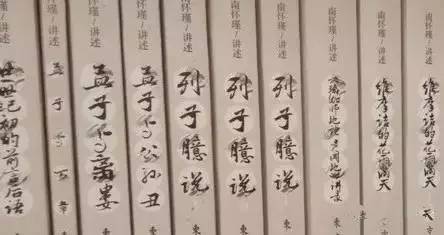 廿一世纪初的前言后语
孟子与万章
南怀瑾/讲述
孟子与离娄
南怀瑾/讲述
孟子与公孙丑
南怀瑾/讲述
列子臆说
东
南怀瑾/讲述
列子臆说
东
南怀瑾/讲述
列子臆说
东
南怀瑾/讲述
瑜伽师地论 声闻地讲录
东
南怀瑾/讲述
维摩诘的花雨满天
南怀瑾/讲述
维摩诘的花雨满天